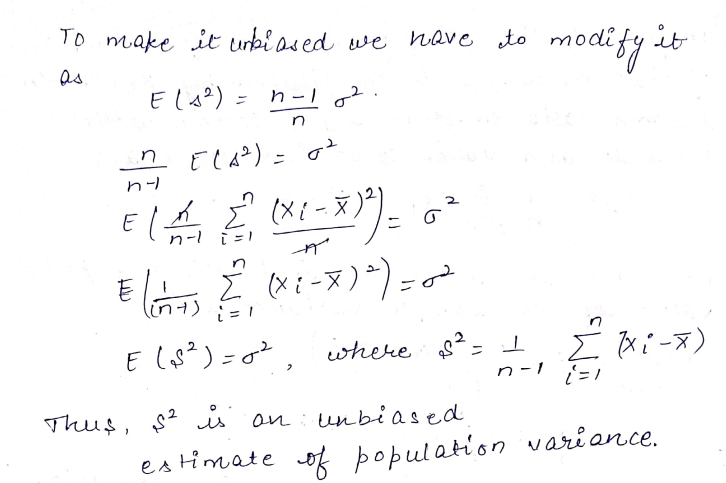 To make it unbiased we have to modify it
as
E(s²) = n-1/n σ².
n/n-1 E(s²) = σ²
E(n/n-1 Σⁿᵢ₌₁ (xi - x̄)²/n) = σ²
E(1/(n-1) Σⁿᵢ₌₁ (xi - x̄)²) = σ²
E(S²) = σ², where S² = 1/n-1 Σⁿᵢ₌₁ (xi - x̄)
Thus, S² is an unbiased
estimate of population variance.